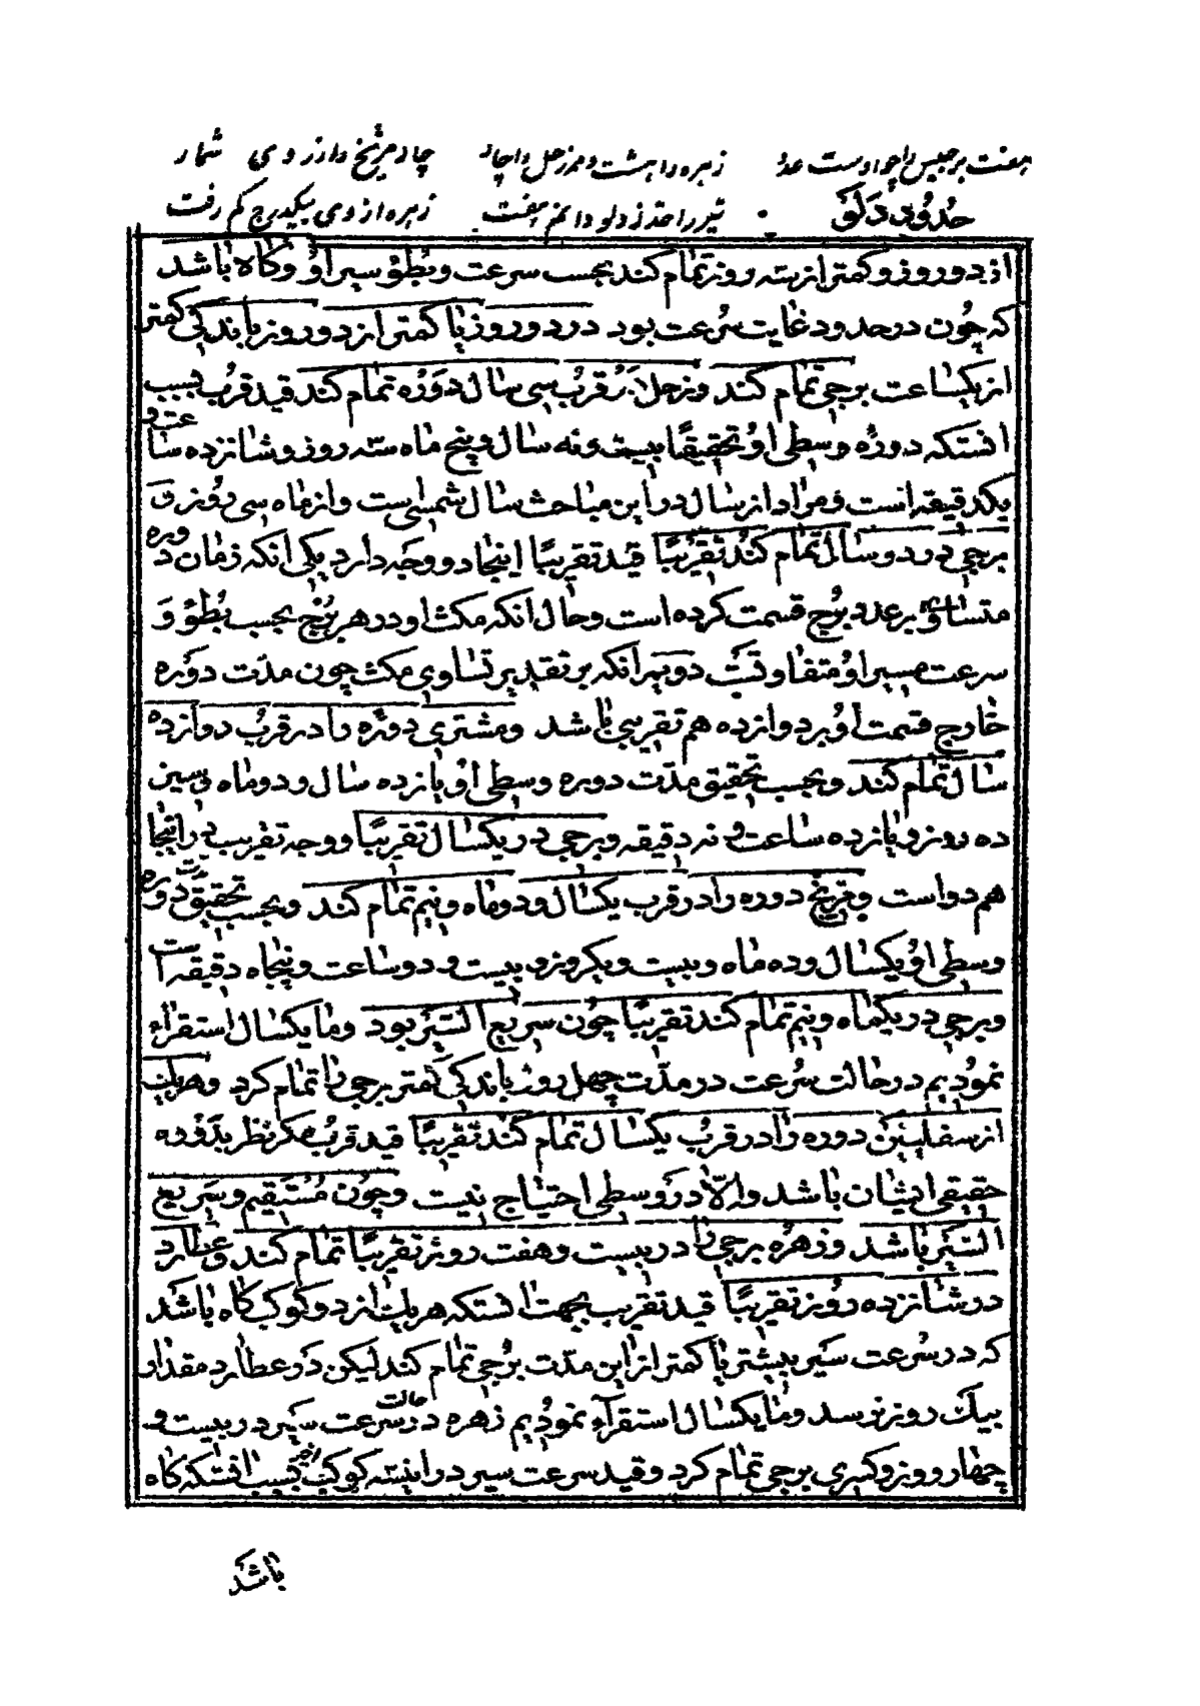 هفت برجیس را چو اوست عدد زهره را هشت و مر زحل را چار چار مریخ را از وی شمار
حدود دلو تیر را حد ز دلو دانم هفت زهره از وی بیکدرج کم رفت
از دو روز و کمتر از سه روز تمام کند بحسب سرعت و بطؤ سیر او و کاه باشد
که چون در حدود غایت سرعت بود در دو روز یا کمتر از دو روز باندکی کمتر
از یکساعت برجی تمام کند و زحل در قرب سی سال دوره تمام کند قید قرب بسبب
انستکه دوره وسطی او تحقیقا بیست و نه سال و پنج ماه سه روز و شانزده ساعت و
یکدقیقه است و مراد از سال در این مباحث سال شمسی است و از ماه سی روز و
برجی در دو سال تمام کند تقریبًا قید تقریبًا اینجا دو وجه دارد یکی انکه زمان دوره
متساوی بر عدد بروج قسمت کرده است و حال انکه مکث او در هر برج بحسب بطؤ و
سرعت مسیر او متفاوتست دویم انکه بر تقدیر تساوی مکث چون مدت دوره
خارج قسمت او بر دوازده هم تقریبی باشد و مشتری دوره را در قرب دوازده
سال تمام کند و بحسب تحقیق مدت دوره وسطی او یازده سال و دو ماه و سین
ده روز و یازده ساعت و نه دقیقه و برجی در یکسال تقریبًا و وجه تقریب در اینجا
هم دو است و مریخ دوره را در قرب یکسال و دو ماه و نیم تمام کند و بحسب تحقیق مدت دوره
وسطی او یکسال و ده ماه و بیست و یکروز و بیست و دو ساعت و پنجاه دقیقه است
و برجی در یکماه و نیم تمام کند تقریبًا چون سریع السیر بود و ما یکسال استقراء
نمودیم در حالت سرعت در مدت چهل روز باندکی کمتر برجی را تمام کرد و هر یک
از سفلیین دوره را در قرب یکسال تمام کند تقریبًا قید قرب مکر نظر بدوره
حقیقی ایشان باشد و الا در وسطی احتیاج نیست و چون مستقیم و سریع
السیر باشد و زهره برجی را در بیست و هفت روز تقریبًا تمام کند و عطارد
در شانزده روز تقریبًا قید تقریب بجهت انستکه هر یک از دو کوکب کاه باشد
که در سرعت سیر بیشتر یا کمتر از این مدت برجی تمام کند لیکن در عطارد مقدار
بیک روز نرسد و ما یکسال استقراء نمودیم زهره در حالت سرعت سیر در بیست و
چهار روز و کسری برجی تمام کرد و قید سرعت سیر در این سه کوکب اخیر بسبب انستکه کاه
باشد